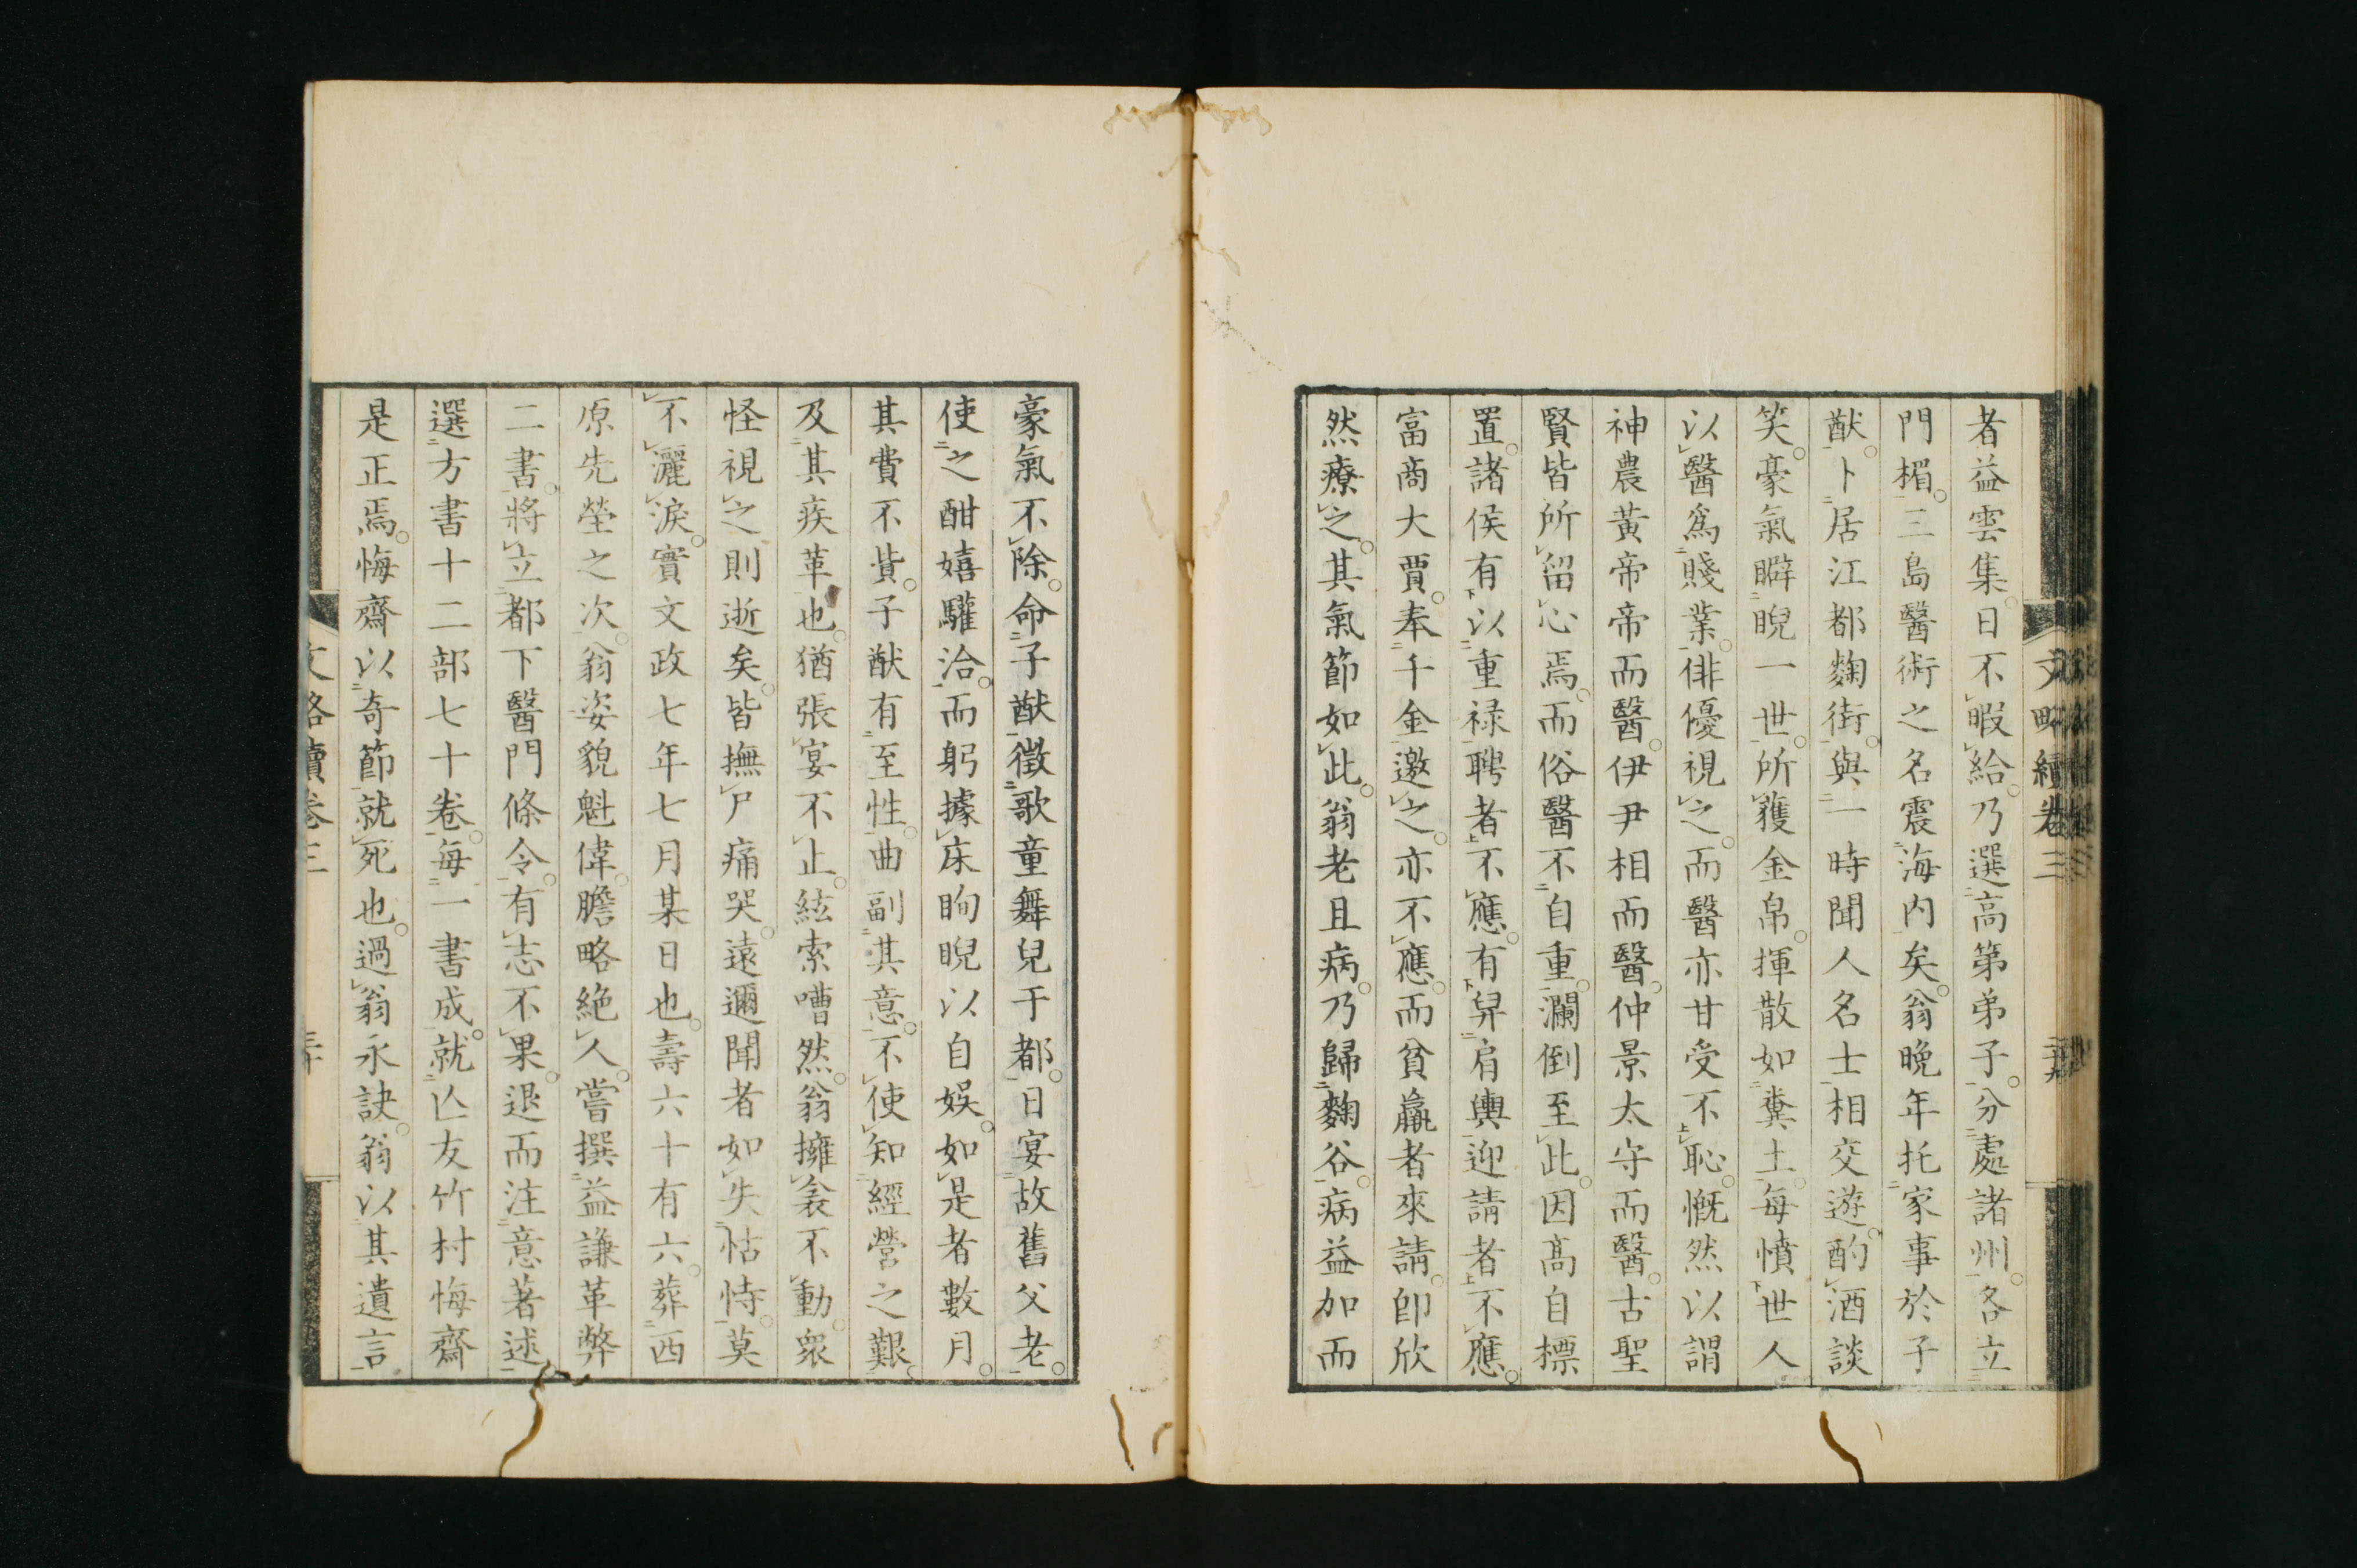 文略續卷三
者益雲集日不暇給乃選高第弟子分處諸州各立
門楣三島醫術之名震海内矣翁晩年托家事於子
猷卜居江都麴街與一時聞人名士相交遊酌酒談
笑豪氣睥睨一世所獲金帛揮散如糞土每憤世人
以醫爲賤業俳優視之而醫亦甘受不恥慨然以謂
神農黃帝帝而醫伊尹相而醫仲景太守而醫古聖
賢皆所留心焉而俗醫不自重瀾倒至此因高自標
置諸侯有以重祿聘者不應有舁肩輿迎請者不應
富商大賈奉千金邀之亦不應而貧羸者來請卽欣
然療之其氣節如此翁老且病乃歸麴谷病益加而
豪氣不除命子猷徵歌童舞兒于都日宴故舊父老
使之酣嬉驩洽而躬據床眴睨以自娯如是者數月
其費不貲子猷有至性曲副其意不使知經營之艱
及其疾革也猶張宴不止絃索嘈然翁擁衾不動衆
怪視之則逝矣皆撫尸痛哭遠邇聞者如失怙恃莫
不灑淚實文政七年七月某日也壽六十有六葬西
原先塋之次翁姿貌魁偉膽略絶人嘗撰益謙革弊
二書將立都下醫門條令有志不果退而注意著述
選方書十二部七十卷每一書成就亾友竹村悔齋
是正焉悔齋以奇節就死也過翁永訣翁以其遺言
文略續卷三